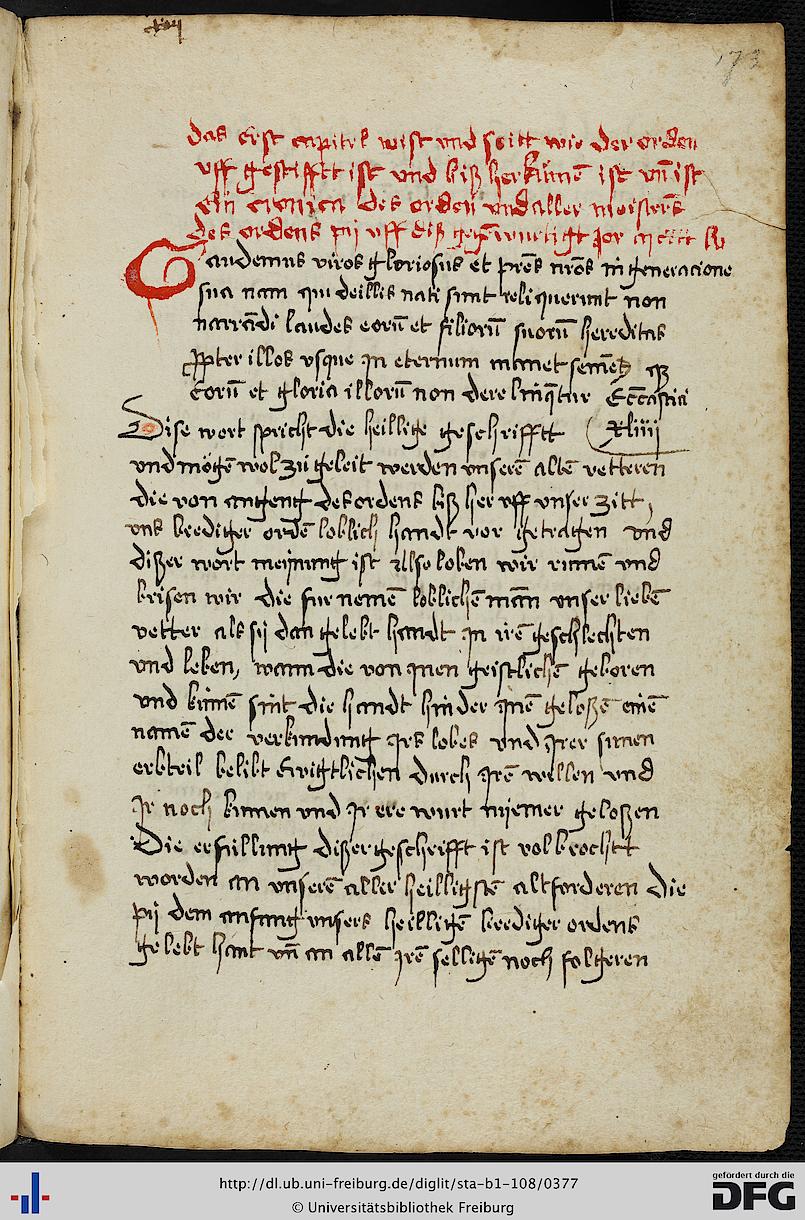 173
das erst capitel wist und seitt wie der orden
uff gestifftt ist und biß herkumē ist vn̄ ist
ein cronica des orden und aller meisters
des ordens
Gaudemus viros gloriosus et prēs nr̄os in generacione
sua nam qui de illis nati sunt reliquerunt non
narrādi laudes eorū et filiorū suorū hereditas
ꝓpter illos usque in eternum manet semē
eorū et gloria illorū non derelinq̄tur Ecc̄astici
Dise wort spricht die heillige geschrifftt xliiij
und mögē wol zü geleit werden unserē altē vetteren
die von angeng des ordens biß her uff unser zitt,
uns brediger ordē loblich handt vor getragen und
dißer wort meijnung ist Allso loben wir rumē und
brisen wir die fur nemē loblichē mān unser liebē
vetter als sij dan gelebt handt in irē geschlechten
und leben, wann die von jnen geistlichē geboren
und kumē sint die handt hinder jnē geloßē einē
namen der verkundung jrs lobes und jrer sunen
erbteil belibt Ewigtlichen durch jrē wellen und
jr noch kumen und jr ere wurt nijemer geloßen
Die erfullung dißer geschrifft ist volbrochtt
worden an unserē aller heilligstē altforderen die
pij dem anfang unsers heilligē brediger ordens
gelebt hant vn̄ an allē jrē selligē noch folgeren
http://dl.ub.uni-freiburg.de/diglit/sta-b1-108/0377
© Universitätsbibliothek Freiburg
gefördert durch die
DFG